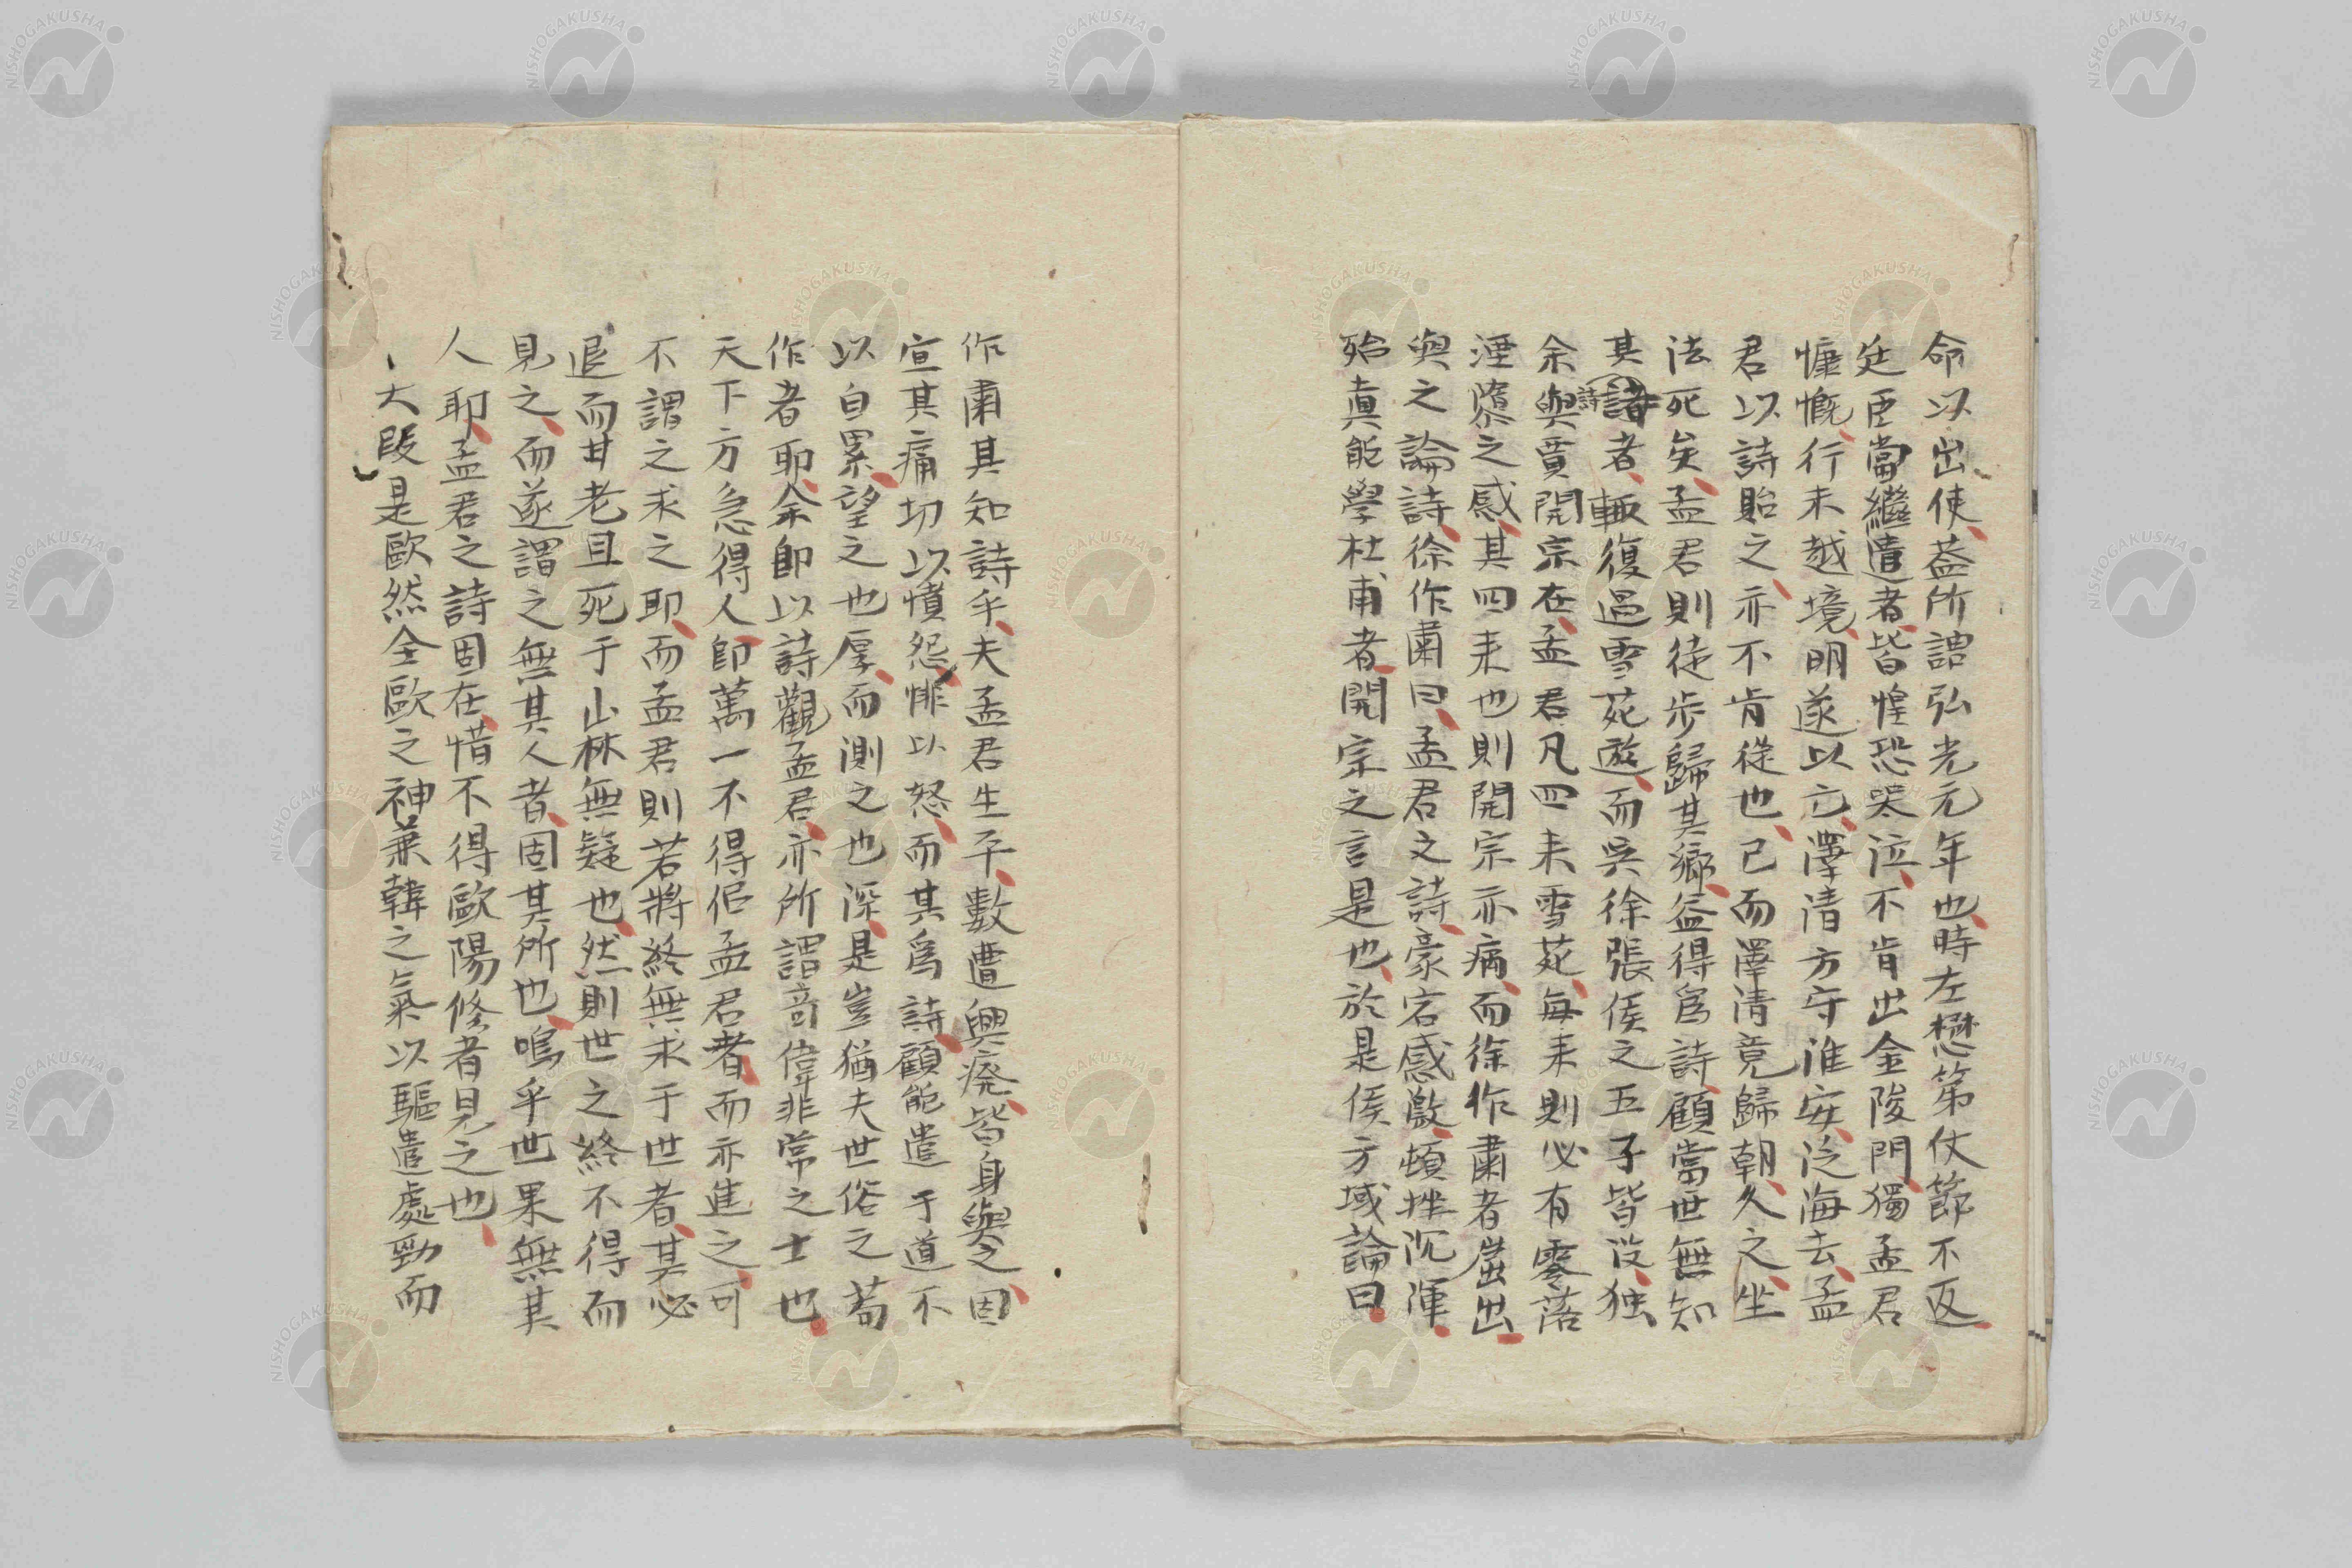 命以出使蓋所謂弘光元年也時左懋第仗節不返
廷臣當繼遣者皆惶恐哭泣不肯出金陵門獨孟君
慷慨行未越境明遂以亡澤清方守淮安泛海去孟
君以詩貽之亦不肯從也已而澤清竟歸朝久之坐
法死矣孟君則徒步歸其鄉益得為詩顧當世無知
其諸者輙復過雪苑遊而吳徐張侯之五子皆沒独
詩
余與賈開宗在孟君凡四来雪苑每来則必有零落
湮隳之感其四来也則開宗亦病而徐作肅者崫出
與之論詩徐作肅曰孟君之詩豪宕感激頓挫沉渾
殆真能學杜甫者開宗之言是也於是侯方域論曰
作肅其知詩乎夫孟君生平數遭興廃皆身與之固
宣其痛切以憤怨悱以怒而其為詩顧能遣于道不
以自累望之也厚而測之也深是豈猶夫世俗之苟
作者耶余即以詩觀孟君亦所謂竒偉非常之士也
天下方急得人即萬一不得佀孟君者而亦進之可
不謂之求之耶而孟君則若將終無求于世者其必
追而甘老且死于山林無疑也然則世之終不得而
見之而遂謂之無其人者固其所也嗚乎世果無其
人耶孟君之詩固在惜不得歐陽脩者見之也
大段是歐然全歐之神兼韓之氣以驅遣處勁而
NISHOGAKUSHA